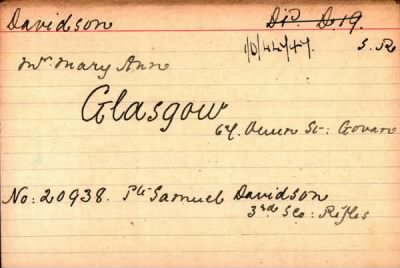 Davidson Dip. D. 19.
1/D/4474. S.R
Mrs Mary Ann
Glasgow
64. St: Govan
No: 20938. Pte Samuel Davidson
3rd Sco: Rifles